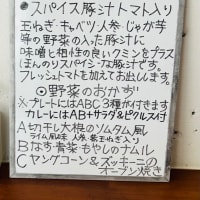 ●スパイス豚汁トマト入り
玉ねぎ・キャベツ・人参・じゃが芋
等の野菜の入った豚汁に
味噌と相性の良いクミンをプラス
ほんのりスパイシーな豚汁です。
フレッシュトマトを加えてお出しします。
◎野菜のおかず
※プレートにはABC3種が付きます
カレーにはAB+サラダ&ピクルス付
A切干大根のソムタム風
ライム風味 人参・紫玉ねぎ入り
Bなす・青菜・もやしのナムル
Cヤングコーン&ズッキーニの
オーブン焼き